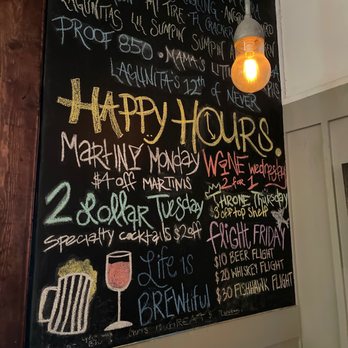 LAGUNITAS LIL SUMPIN SUMPIN
PROOF 850. MAMA'S LITTLE
LAGUNITA'S 12th of NEVER
HAPPY HOURS.
MARTINI MONDAY
$4 off MARTINIS
2 Dollar Tuesday
Specialty cocktails $2 off
WINE wednesday
2 for 1
THRONE Thursday
$3 off top shelf
flight FRIDAY
$10 BEER FLIGHT
$20 WHISKEY FLIGHT
$30 FISHHAWK FLIGHT
Life is
BREWtiful